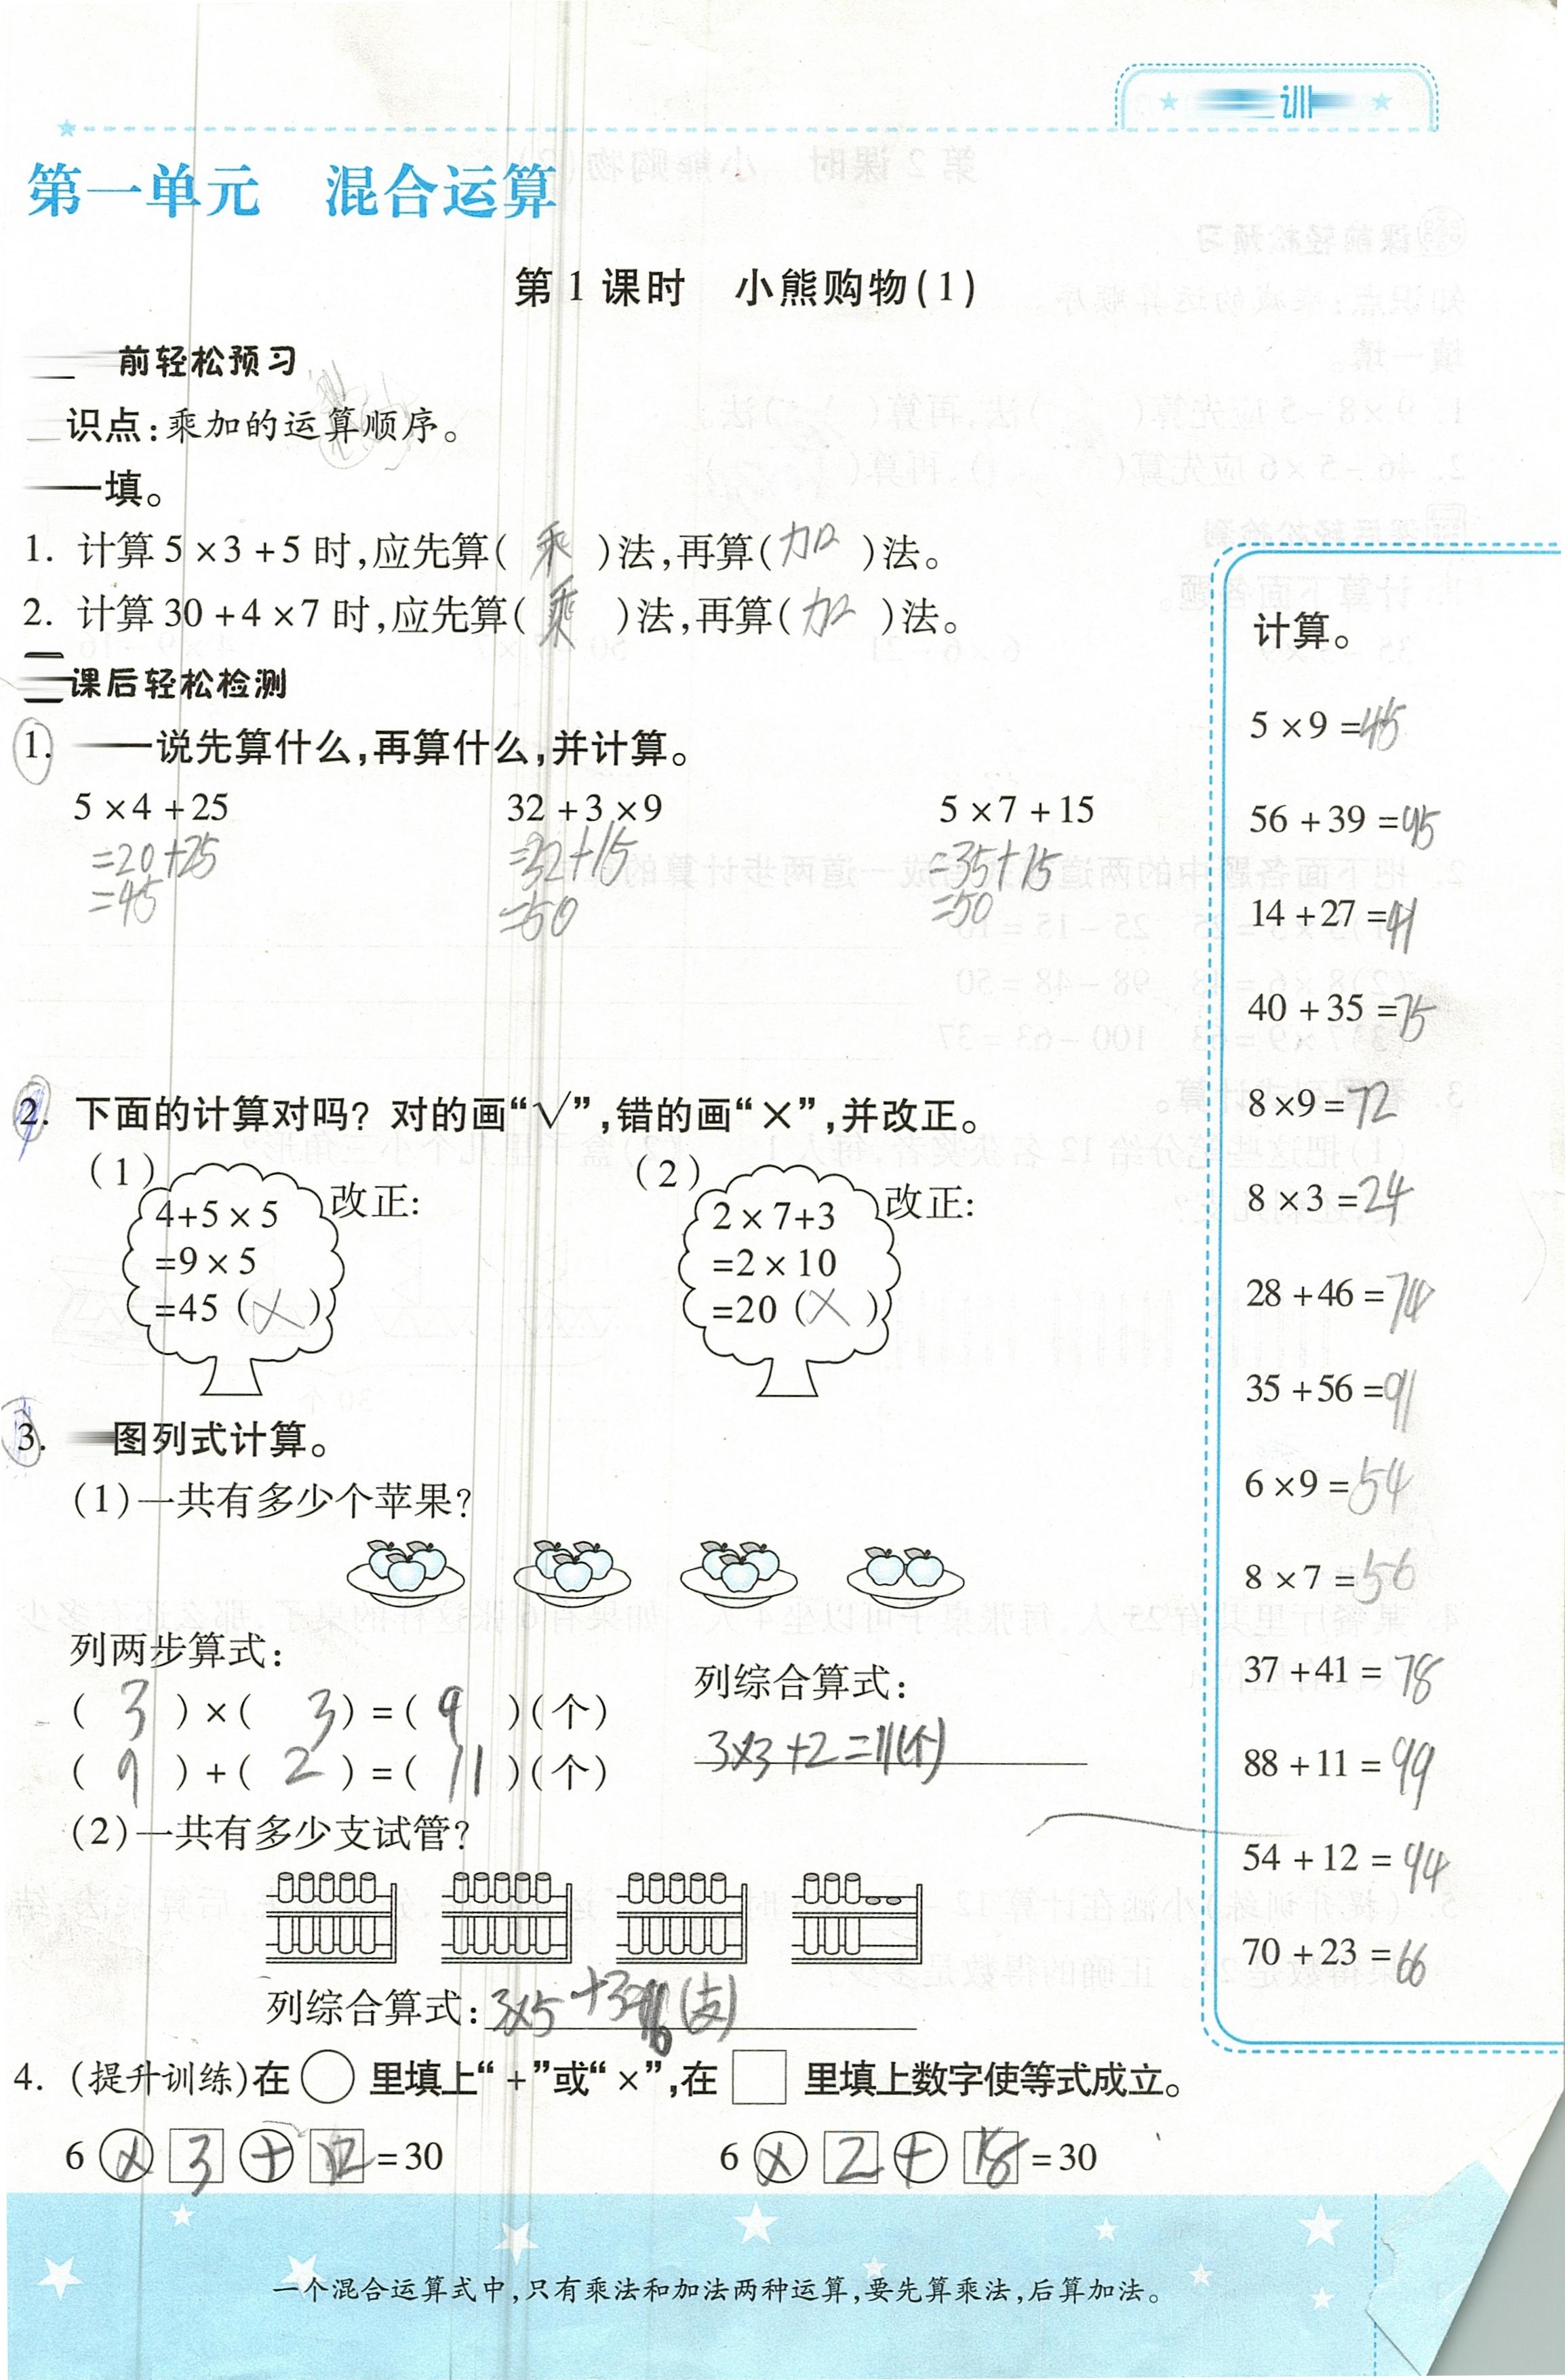 训
第一单元 混合运算
第1课时 小熊购物(1)
前轻松预习
识点:乘加的运算顺序。
填。
1. 计算5×3+5时,应先算( 乘 )法,再算( 加 )法。
2. 计算30+4×7时,应先算( 乘 )法,再算( 加 )法。
课后轻松检测
1. 说先算什么,再算什么,并计算。
5×4+25 32+3×9 5×7+15
=20+25 =32+15 =35+15
=45 =50 =50
2. 下面的计算对吗?对的画“√”,错的画“×”,并改正。
(1) 改正: (2) 改正:
4+5×5 2×7+3
=9×5 =2×10
=45(×) =20(×)
3. 图列式计算。
(1)一共有多少个苹果?
列两步算式: 列综合算式:
( 3 )×( 3 )=( 9 )(个) 3×3+2=11(个)
( 9 )+( 2 )=( 11 )(个)
(2)一共有多少支试管?
列综合算式: 3×5+3 (支)
4. (提升训练)在○里填上“+”或“×”,在□里填上数字使等式成立。
6 × 3 + 12 =30 6 × 2 + 18 =30
一个混合运算式中,只有乘法和加法两种运算,要先算乘法,后算加法。
计算。
5×9=45
56+39=95
14+27=41
40+35=75
8×9=72
8×3=24
28+46=74
35+56=91
6×9=54
8×7=56
37+41=78
88+11=99
54+12=94
70+23=66